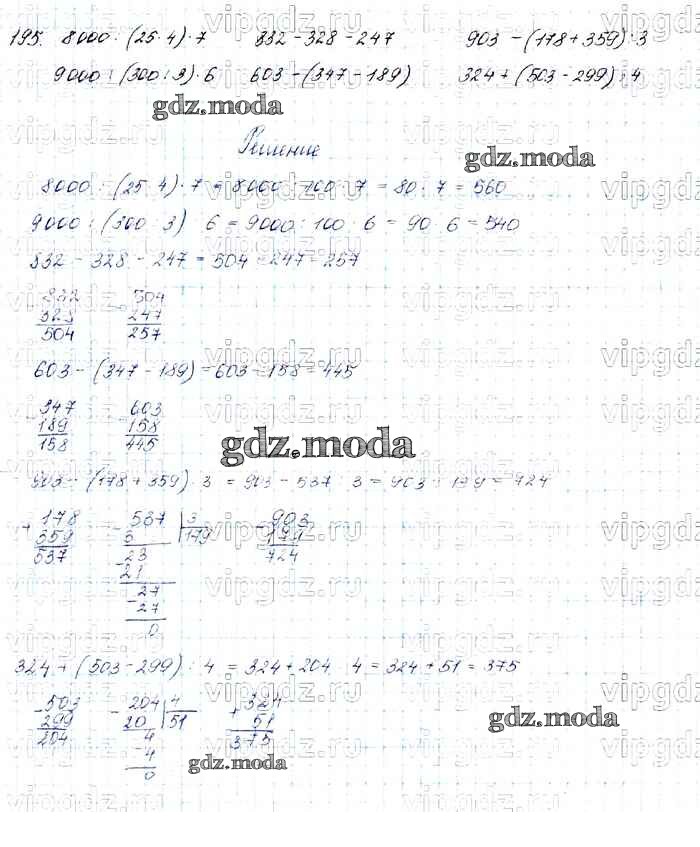 195. 8000 : (25·4)·7 832 - 328 - 247 903 - (178 + 359) : 3
9000 : (300 : 3) · 6 603 - (347 - 189) 324 + (503 - 299) : 4
gdz.moda
Решение
gdz.moda
8000 : (25·4) · 7 = 8000 : 100 · 7 = 80 · 7 = 560
9000 : (300 : 3) · 6 = 9000 : 100 · 6 = 90 · 6 = 540
832 - 328 - 247 = 504 - 247 = 257
832 504
- 328 - 247
504 257
603 - (347 - 189) = 603 - 158 = 445
347 603
- 189 - 158
158 445
gdz.moda
903 - (178 + 359) : 3 = 903 - 537 : 3 = 903 - 179 = 724
178 537 | 3 903
+ 359 - 3 | 179 - 179
537 23 724
- 21
27
- 27
0
324 + (503 - 299) : 4 = 324 + 204 : 4 = 324 + 51 = 375
503 204 | 4 324
- 299 - 20 | 51 + 51
204 4 375
- 4
0
gdz.moda
gdz.moda
vipgdz.ru